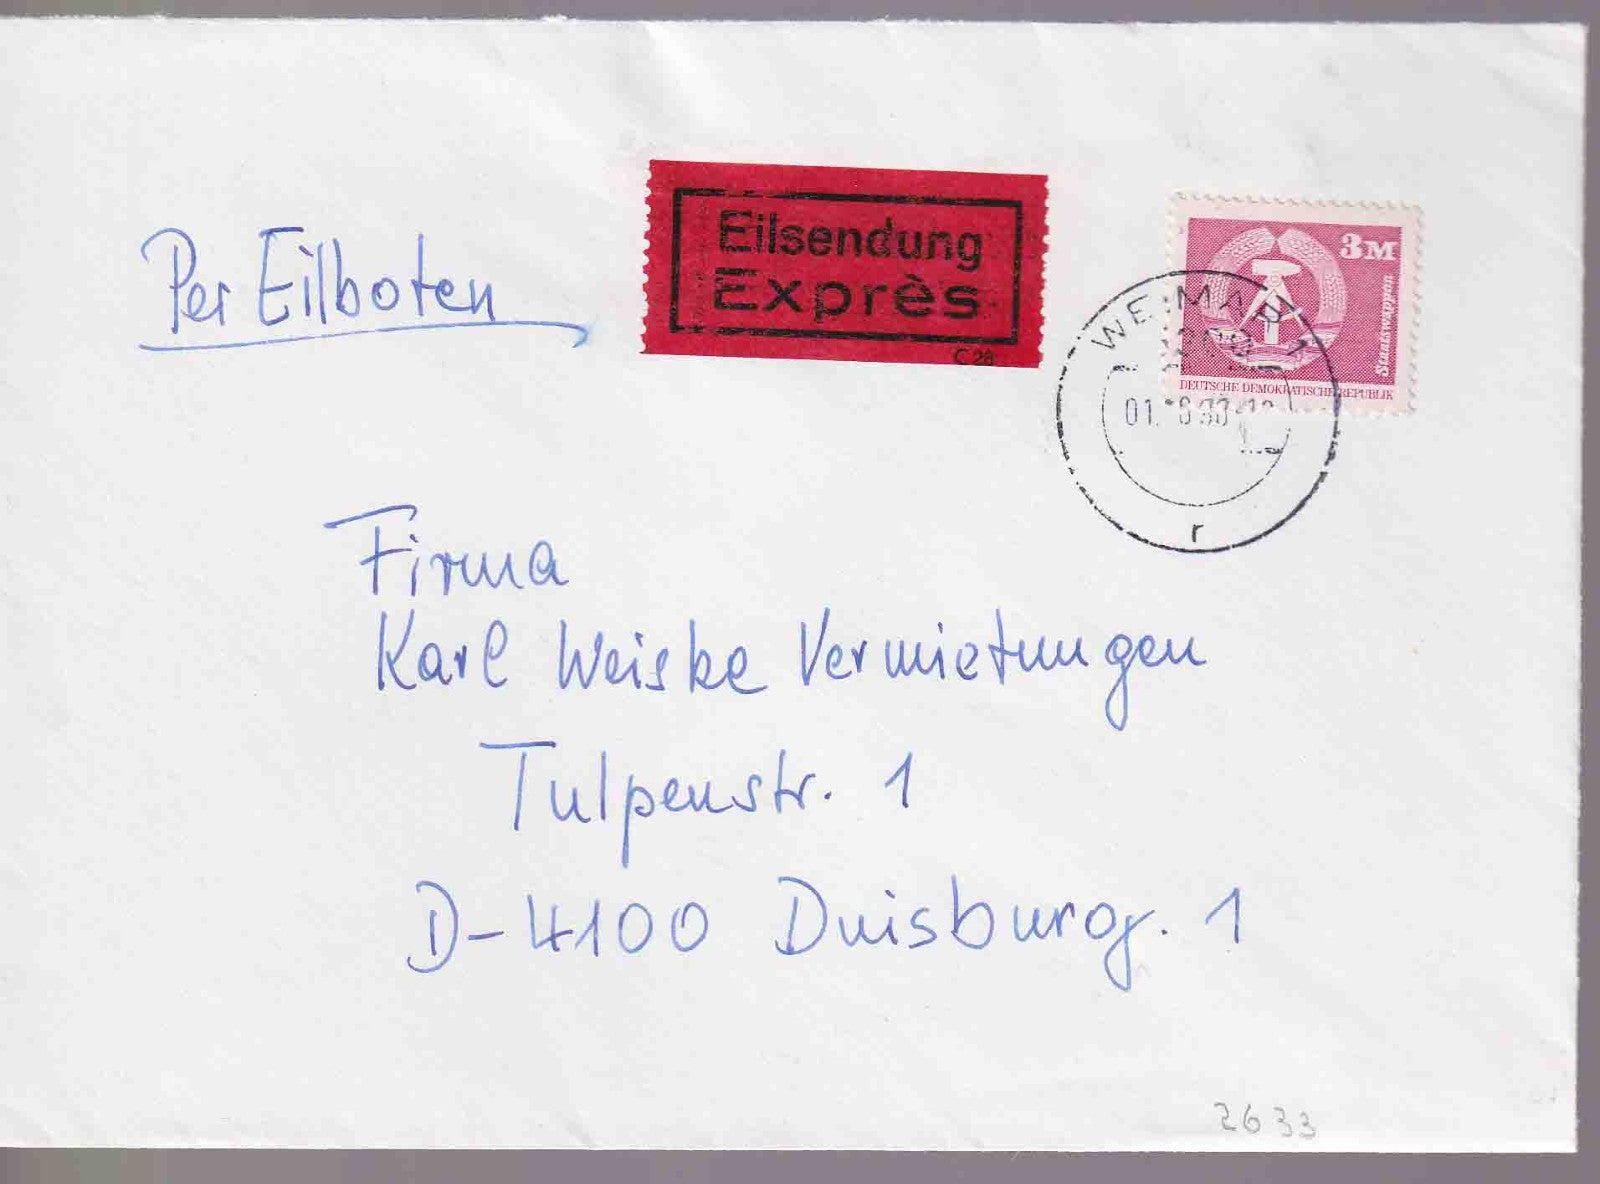 Per Eilboten
Eilsendung
Exprès
C 28
3M
Staatswappen
DEUTSCHE DEMOKRATISCHE REPUBLIK
WEIMAR 1
r
Firma
Karl Weiske Vermietungen
Tulpenstr. 1
D-4100 Duisburg. 1
2633